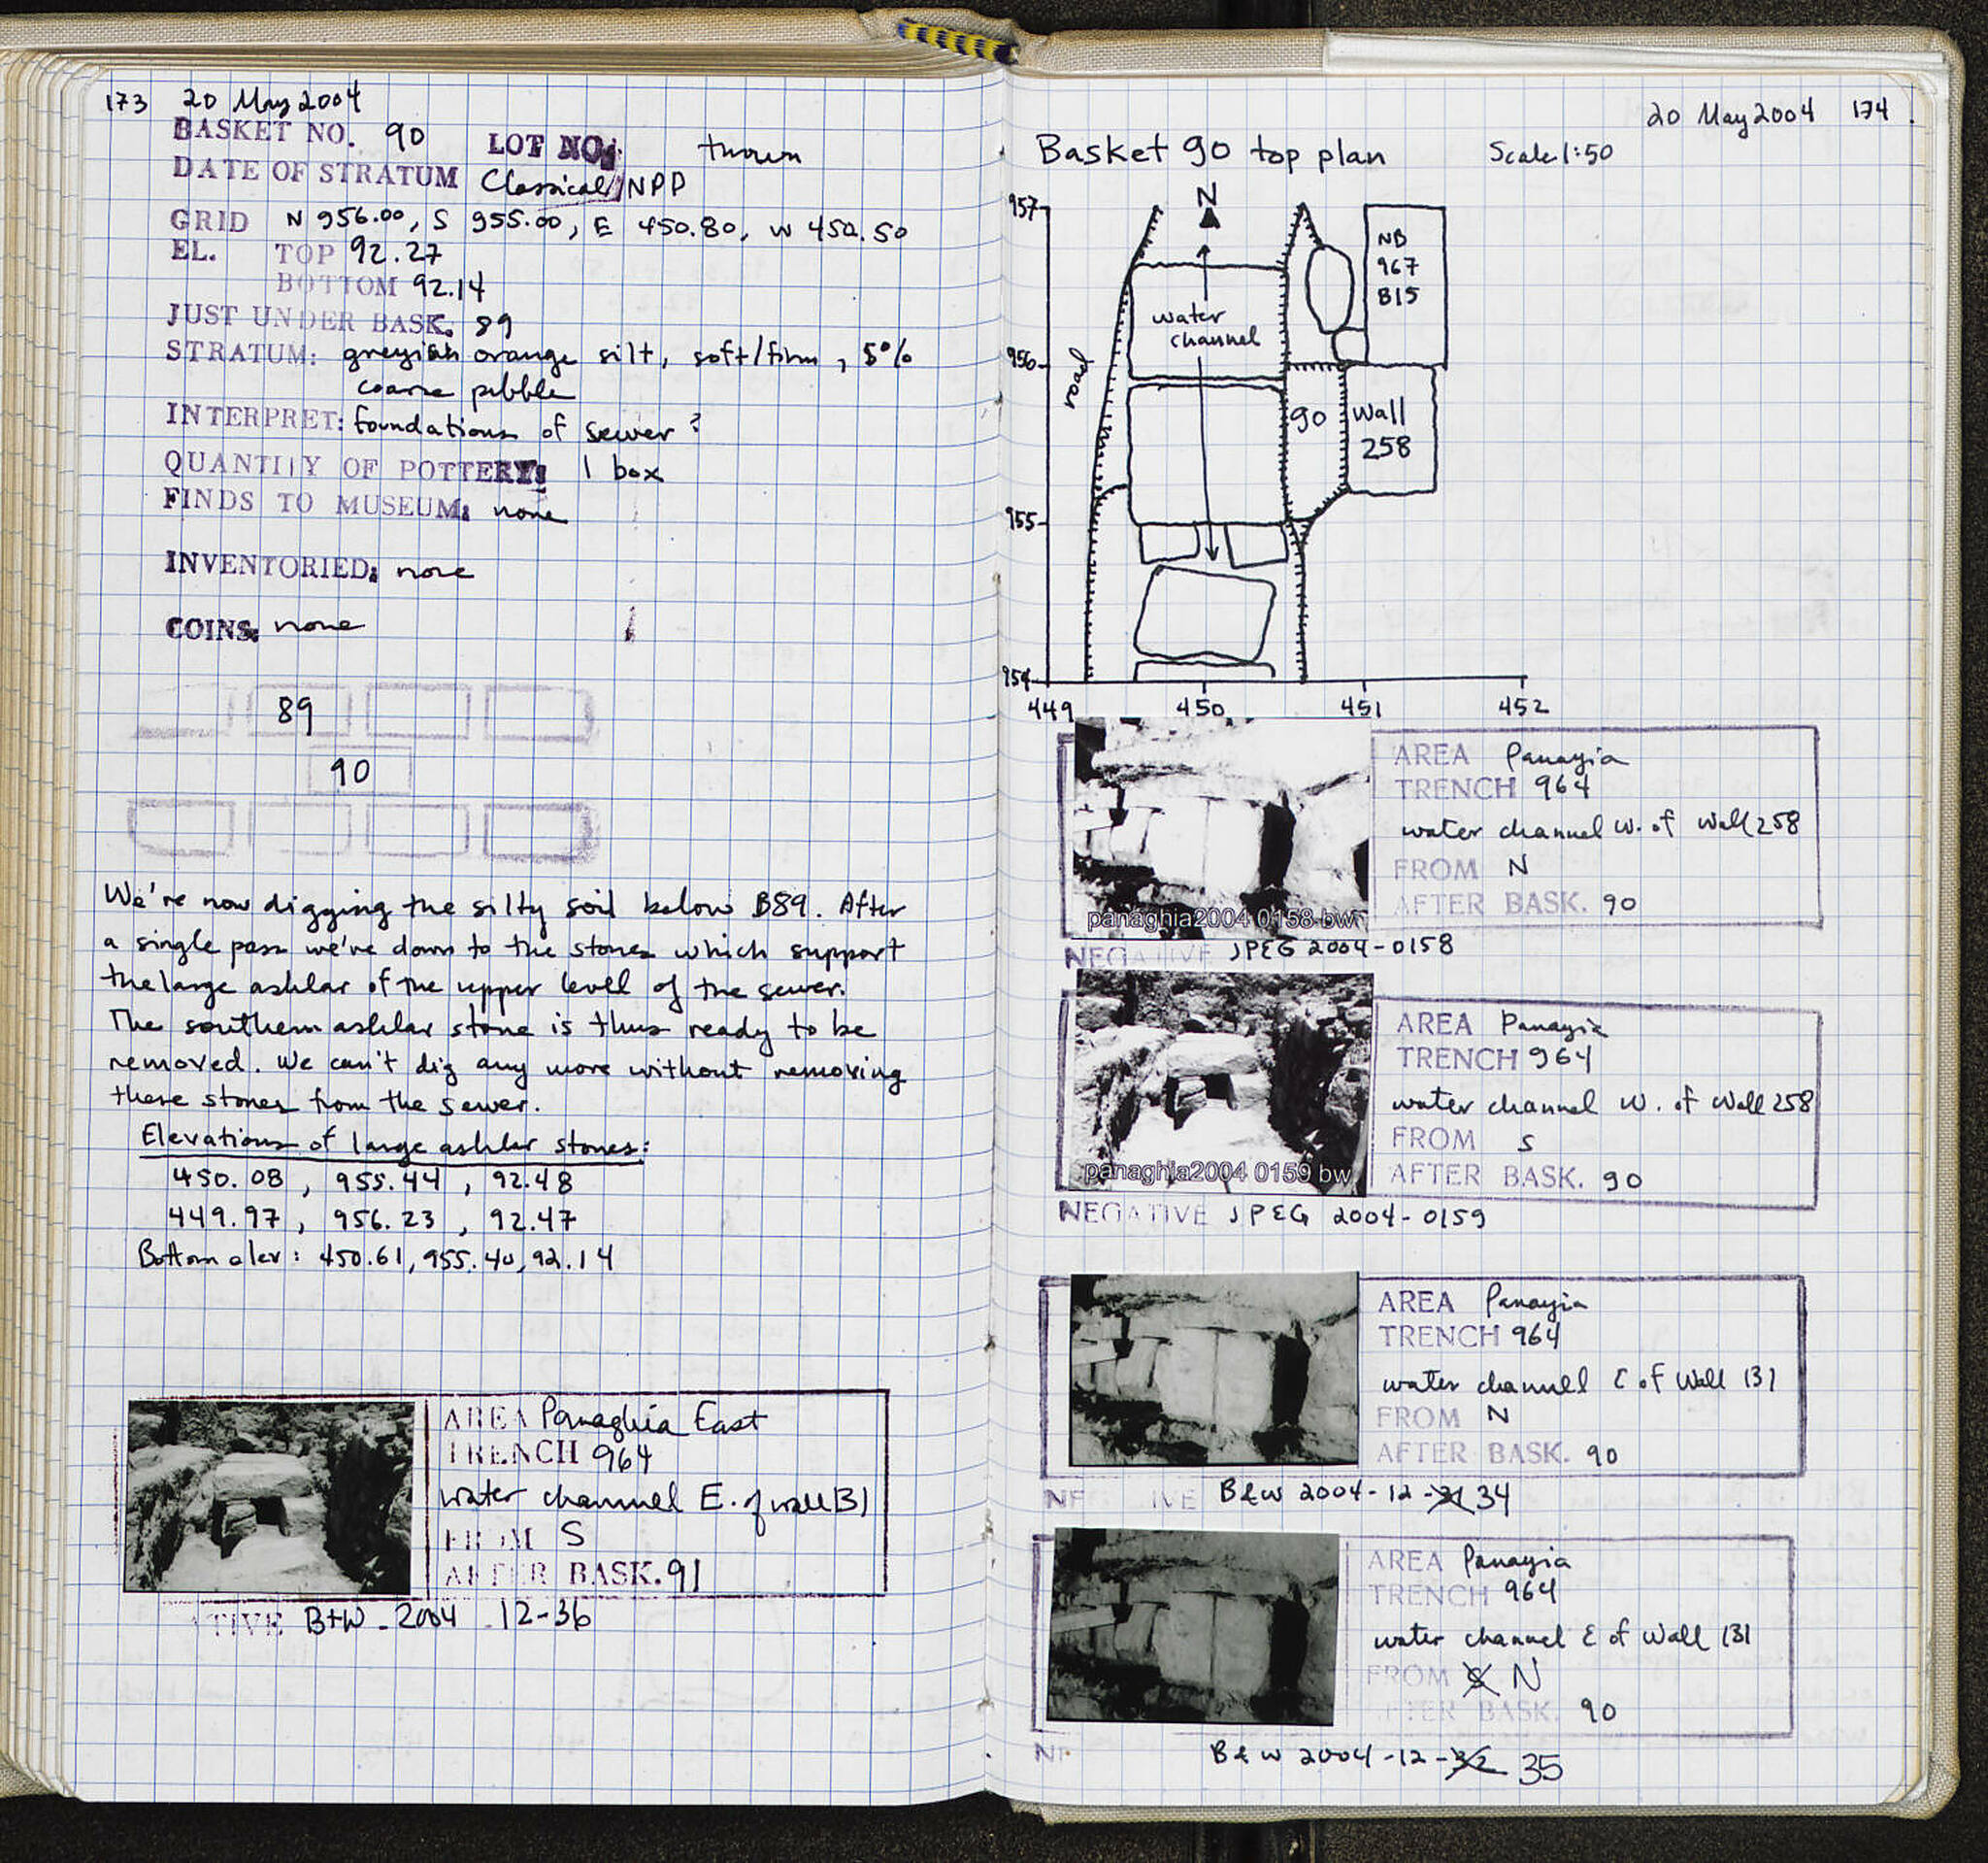 173 20 May 2004
BASKET NO. 90 LOT NO. thrown
DATE OF STRATUM Classical/NPD
GRID N 956.00, S 955.00, E 450.80, W 450.50
EL. TOP 92.27
BOTTOM 92.14
JUST UNDER BASK. 89
STRATUM: greyish orange silt, soft/firm, 5%
coarse pebble
INTERPRET: foundations of sewer?
QUANTITY OF POTTERY: 1 box
FINDS TO MUSEUM: none
INVENTORIED: none
COINS: none
89
90
We're now digging the silty soil below B89. After
a single pass we've down to the stones which support
the large ashlar of the upper level of the sewer.
The southern ashlar stone is thus ready to be
removed. We can't dig any more without removing
these stones from the sewer.
Elevations of large ashlar stones:
450.08, 955.44, 92.48
449.97, 956.23, 92.47
Bottom elev: 450.61, 955.40, 92.14
AREA Panaghia East
TRENCH 964
water channel E. of wall 131
FROM S
AFTER BASK. 91
ATIVE B+W - 2004 - 12-36
20 May 2004 174
Basket 90 top plan Scale 1:50
N
957
NB
967
B15
water
channel
956
90
Wall
258
955
954
449 450 451 452
AREA Panayia
TRENCH 964
water channel W. of Wall 258
FROM N
AFTER BASK. 90
panaghia2004 0158 bw
NEGATIVE JPEG 2004-0158
AREA Panayia
TRENCH 964
water channel W. of Wall 258
FROM S
AFTER BASK. 90
panaghia2004 0159 bw
NEGATIVE JPEG 2004-0159
AREA Panayia
TRENCH 964
water channel E of Wall 131
FROM N
AFTER BASK. 90
B&W 2004-12-34
AREA Panayia
TRENCH 964
water channel E of Wall 131
FROM N
AFTER BASK. 90
B&W 2004-12-35